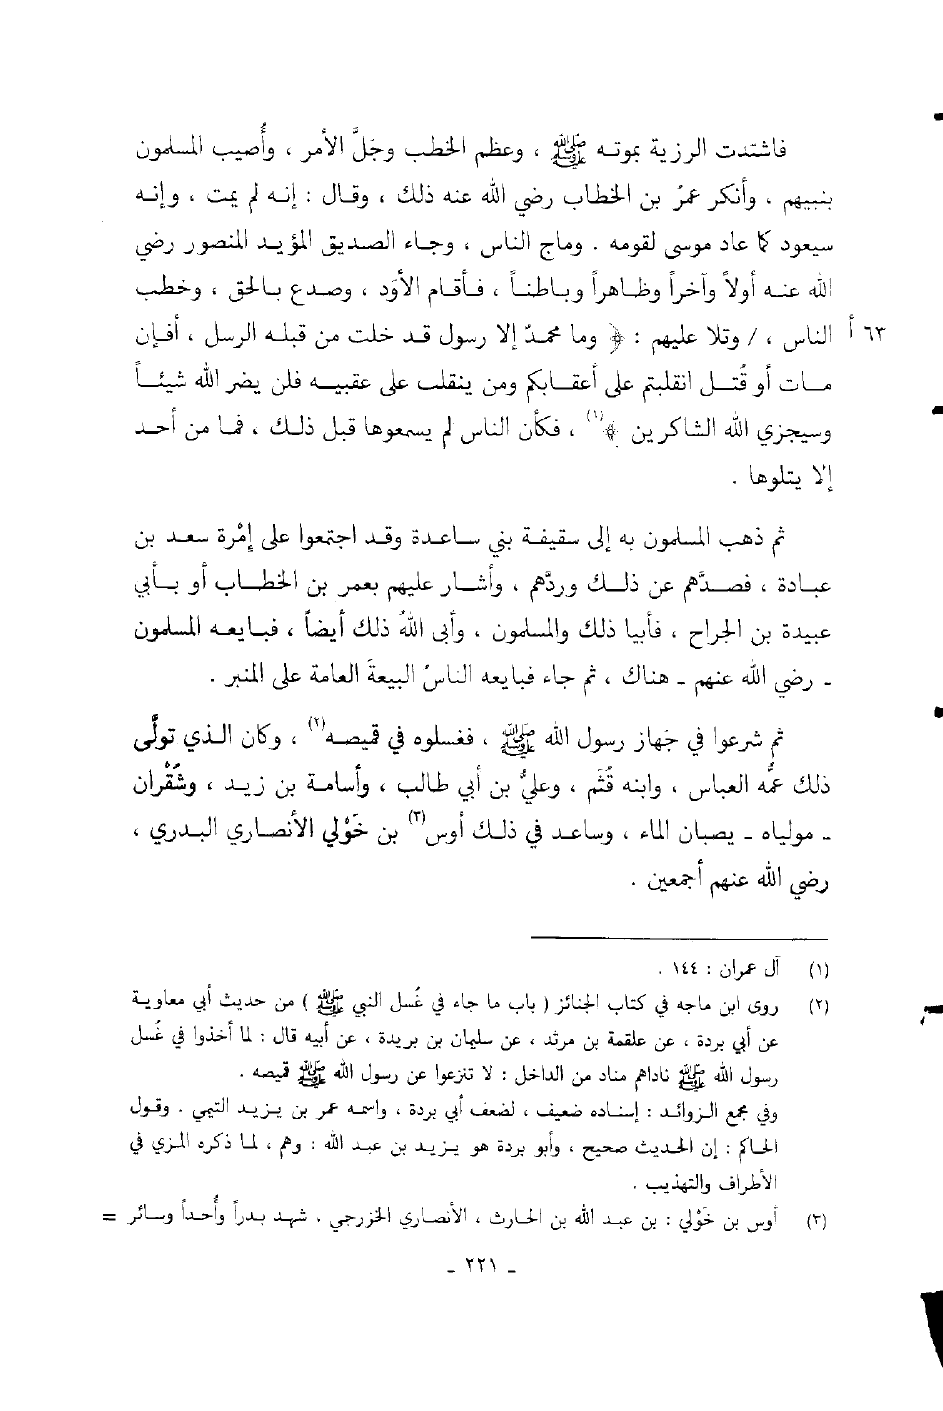 فاشتدت الرزية بموته ﷺ ، وعظم الخطب وجلَّ الأمر ، وأُصيب المسلمون
بنبيهم ، وأنكر عمرُ بن الخطاب رضي الله عنه ذلك ، وقال : إنه لم يمت ، وإنه
سيعود كما عاد موسى لقومه . وماج الناس ، وجاء الصديق المؤيد المنصور رضي
الله عنه أولاً وآخراً وظاهراً وباطناً ، فأقام الأوَد ، وصدع بالحق ، وخطب
٦٣ أ الناس ، / وتلا عليهم : ﴿ وما محمدٌ إلا رسول قد خلت من قبله الرسل ، أفإن
مات أو قُتل انقلبتم على أعقابكم ومن ينقلب على عقبيه فلن يضر الله شيئاً
وسيجزي الله الشاكرين ﴾(١) ، فكأن الناس لم يسمعوها قبل ذلك ، فما من أحد
إلا يتلوها .
ثم ذهب المسلمون به إلى سقيفة بني ساعدة وقد اجتمعوا على إمْرة سعد بن
عبادة ، فصدَّهم عن ذلك وردَّهم ، وأشار عليهم بعمر بن الخطاب أو بأبي
عبيدة بن الجراح ، فأبيا ذلك والمسلمون ، وأبى اللهُ ذلك أيضاً ، فبايعه المسلمون
ـ رضي الله عنهم ـ هناك ، ثم جاء فبايعه الناسُ البيعةَ العامة على المنبر .
ثم شرعوا في جهاز رسول الله ﷺ ، فغسلوه في قميصه(٢) ، وكان الذي تولَّى
ذلك عمُّه العباس ، وابنه قُثَم ، وعليُّ بن أبي طالب ، وأسامة بن زيد ، وشُقْران
ـ مولياه ـ يصبان الماء ، وساعد في ذلك أوس(٣) بن خَوْلي الأنصاري البدري ،
رضي الله عنهم أجمعين .
(١) آل عمران : ١٤٤ .
(٢) روى ابن ماجه في كتاب الجنائز ( باب ما جاء في غُسل النبي ﷺ ) من حديث أبي معاوية
عن أبي بردة ، عن علقمة بن مرثد ، عن سليمان بن بريدة ، عن أبيه قال : لما أخذوا في غُسل
رسول الله ﷺ ناداهم مناد من الداخل : لا تنزعوا عن رسول الله ﷺ قميصه .
وفي مجمع الزوائد : إسناده ضعيف ، لضعف أبي بردة ، واسمه عمر بن يزيد التيمي . وقول
الحاكم : إن الحديث صحيح ، وأبو بردة هو يزيد بن عبد الله : وهم ، لما ذكره المزي في
الأطراف والتهذيب .
(٣) أوس بن خَوْلي : بن عبد الله بن الحارث ، الأنصاري الخزرجي . شهد بدراً وأُحداً وسائر =
ـ ٢٢١ ـ